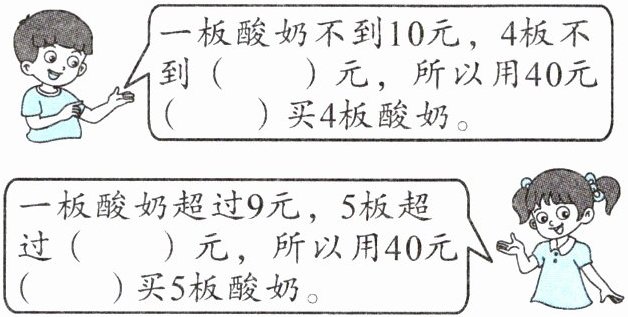 一板酸奶不到10元，4板不
到（　　）元，所以用40元
（　　）买4板酸奶。
一板酸奶超过9元，5板超
过（　　）元，所以用40元
（　　）买5板酸奶。